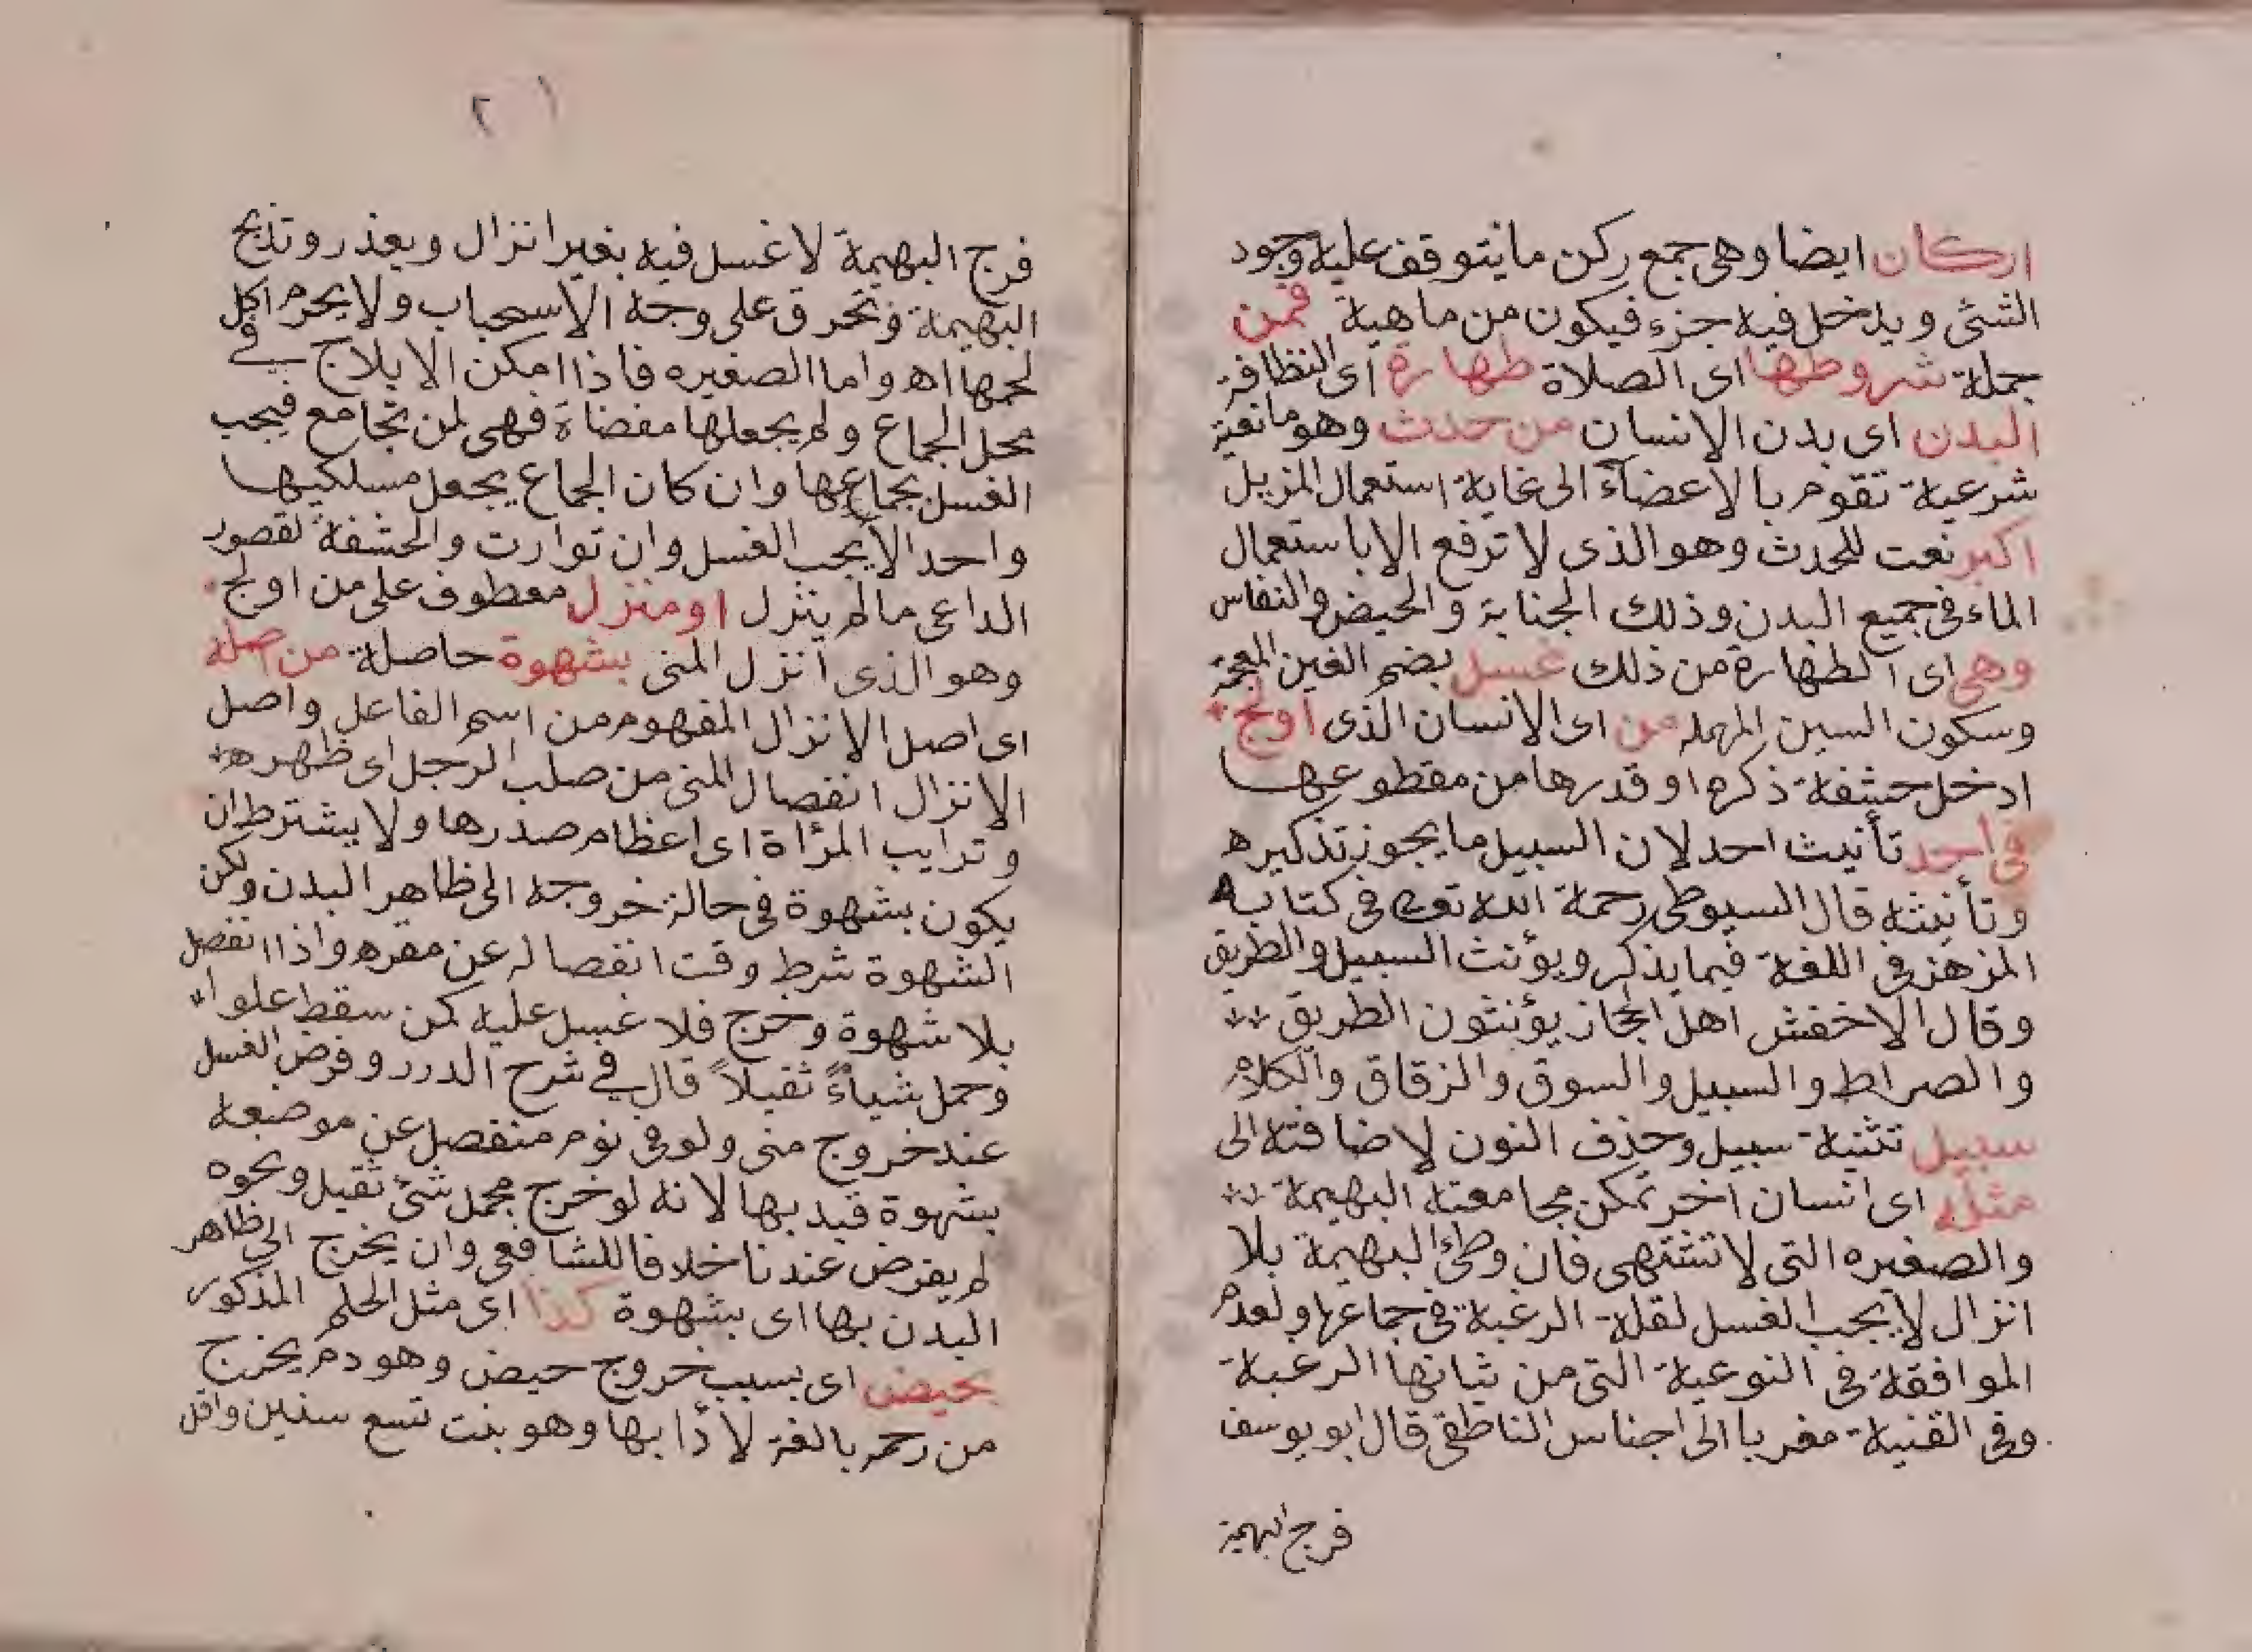 اركان ايضا وهى جمع ركن ما يتوقف عليه وجود
الشئ ويدخل فيه جزء فيكون من ماهية فمن
جملة شروطها اى الصلاة طهارة اى النظافة
البدن اى بدن الانسان من حدث وهو مانعية
شرعية تقوم بالاعضاء الى غاية استعمال المزيل
اكبر نعت للحدث وهو الذى لا ترفع الا باستعمال
الماء فى جميع البدن وذلك الجنابة والحيض والنفاس
وهى اى الطهارة من ذلك غسل بضم الغين المعجمة
وسكون السين المهملة من اى الانسان الذى اولج
ادخل حشفة ذكره او قدرها من مقطوعها
فى احد تأنيث احد لان السبيل ما يجوز تذكيره
وتأنيثه قال السيوطى رحمة الله تعالى فى كتابه
المزهر فى اللغة فيما يذكر ويؤنث السبيل والطريق
وقال الاخفش اهل الحجاز يؤنثون الطريق
والصراط والسبيل والسوق والزقاق والكلام
سبيل تثنية سبيل وحذف النون لاضافته الى
مثله اى انسان اخر تمكن مجامعته البهيمة
والصغيره التى لا تشتهى فان وطئ البهيمة بلا
انزال لا يجب الغسل لقلة الرغبة فى جماعها ولعدم
الموافقة فى النوعية التى من شانها الرغبة
وفى القنية مغريا الى اجناس الناطفى قال ابو يوسف
فرج البهيمة
٢
فرج البهيمة لا غسل فيه بغير انزال ويعذر وتذبح
البهيمة وتحرق على وجه الاسحباب ولا يحرم اكل
لحمها اه واما الصغيره فاذا امكن الايلاج فى
محل الجماع ولم يجعلها مفضاة فهى لمن تجامع فيجب
الغسل بجماعها وان كان الجماع يجعل مسلكيها
واحدا لا يجب الغسل وان توارت والحشفة لقصور
الداعى ما لم ينزل او منزل معطوف على من اولج
وهو الذى انزل المنى بشهوة حاصلة من اصله
اى اصل الانزال المفهوم من اسم الفاعل واصل
الانزال انفصال المنى من صلب الرجل اى ظهره
وترايب المرأة اى اعظام صدرها ولا يشترط ان
يكون بشهوة فى حالة خروجه الى ظاهر البدن ولكن
الشهوة شرط وقت انفصاله عن مقره واذا انفصل
بلا شهوة وخرج فلا غسل عليه كمن سقط علوا
وحمل شياءً ثقيلاً قال فى شرح الدرر وفرض الغسل
عند خروج منى ولو فى نوم منفصل عن موضعه
بشهوة قيد بها لانه لو خرج بحمل شئ ثقيل ونحوه
لم يفرض عندنا خلافا للشافعى وان يخرج الى ظاهر
البدن بها اى بشهوة كذا اى مثل الحكم المذكور
بحيض اى بسبب خروج حيض وهو دم يخرج
من رحم بالغة لا دأ بها وهو بنت تسع سنين واقل